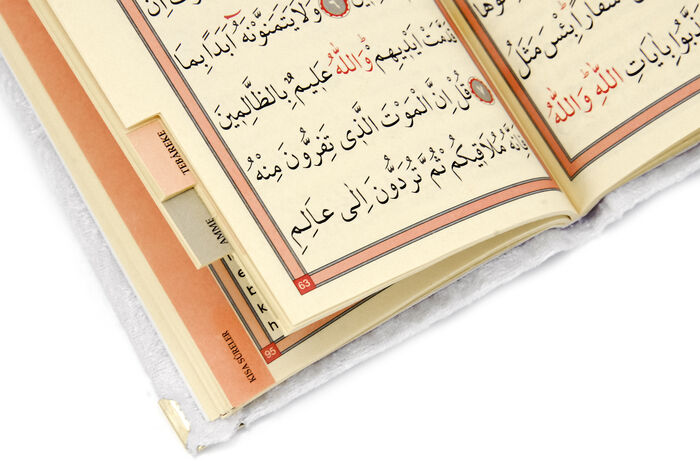 بِئْسَ مَثَلُ
بِاٰيَاتِ اللّٰهِ وَاللّٰهُ
٦ وَلَا يَتَمَنَّوْنَهُ اَبَدًا بِمَا
قَدَّمَتْ اَيْدِيهِمْ وَاللّٰهُ عَلِيمٌ بِالظَّالِمِينَ
٧ قُلْ اِنَّ الْمَوْتَ الَّذِى تَفِرُّونَ مِنْهُ
فَاِنَّهُ مُلَاقِيكُمْ ثُمَّ تُرَدُّونَ اِلٰى عَالِمِ
63
TEBAREKE
AMME
KISA SÛRELER
95